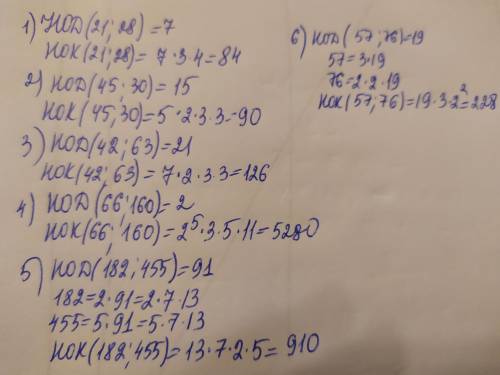 1) НОД(21;28)=7
НОК(21;28)= 7·3·4=84
2) НОД(45·30)=15
НОК(45;30)=5·2·3·3=90
3) НОД(42;63)=21
НОК(42;63)= 7·2·3·3=126
4) НОД(66;160)=2
НОК(66;160)=2⁵·3·5·11=5280
5) НОД(182;455)=91
182=2·91=2·7·13
455=5·91=5·7·13
НОК(182;455)=13·7·2·5=910
6) НОД(57;76)=19
57=3·19
76=2·2·19
НОК(57;76)=19·3·2²=228